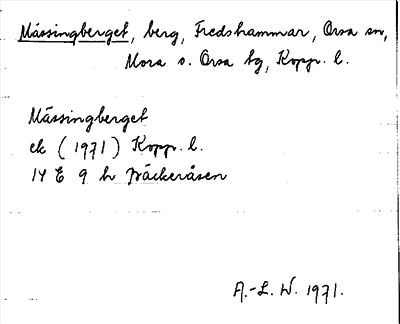 Mässingberget, berg, Fredshammar, Orsa sn,
Mora o. Orsa tg, Kopp. l.
Mässingberget
ek (1971) Kopp. l.
14 E 9 h Fräckeråsen
A.-L. W. 1971.